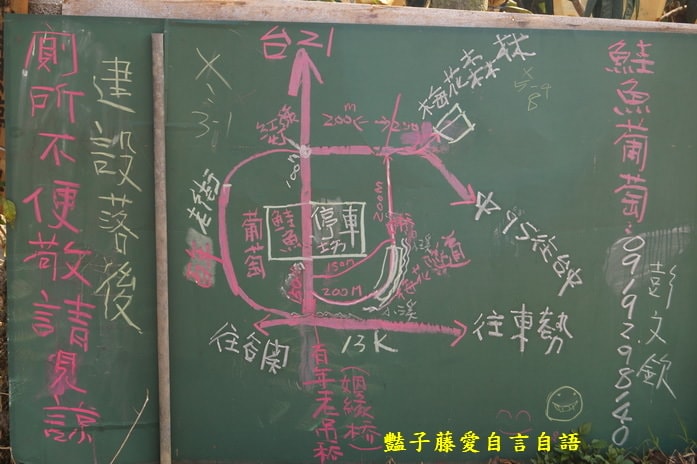 廁所不便敬請見諒
建設落後
台21
梅花森林
200M
紅綠
老街
葡萄
鮭魚
停車場
中95往台中
200M
150M
200M
小溪
小溪
往谷関
13K
往東勢
百年老吊橋
(姻緣橋)
鮭魚葡萄:0919298140
彭文欽
豔子藤愛自言自語